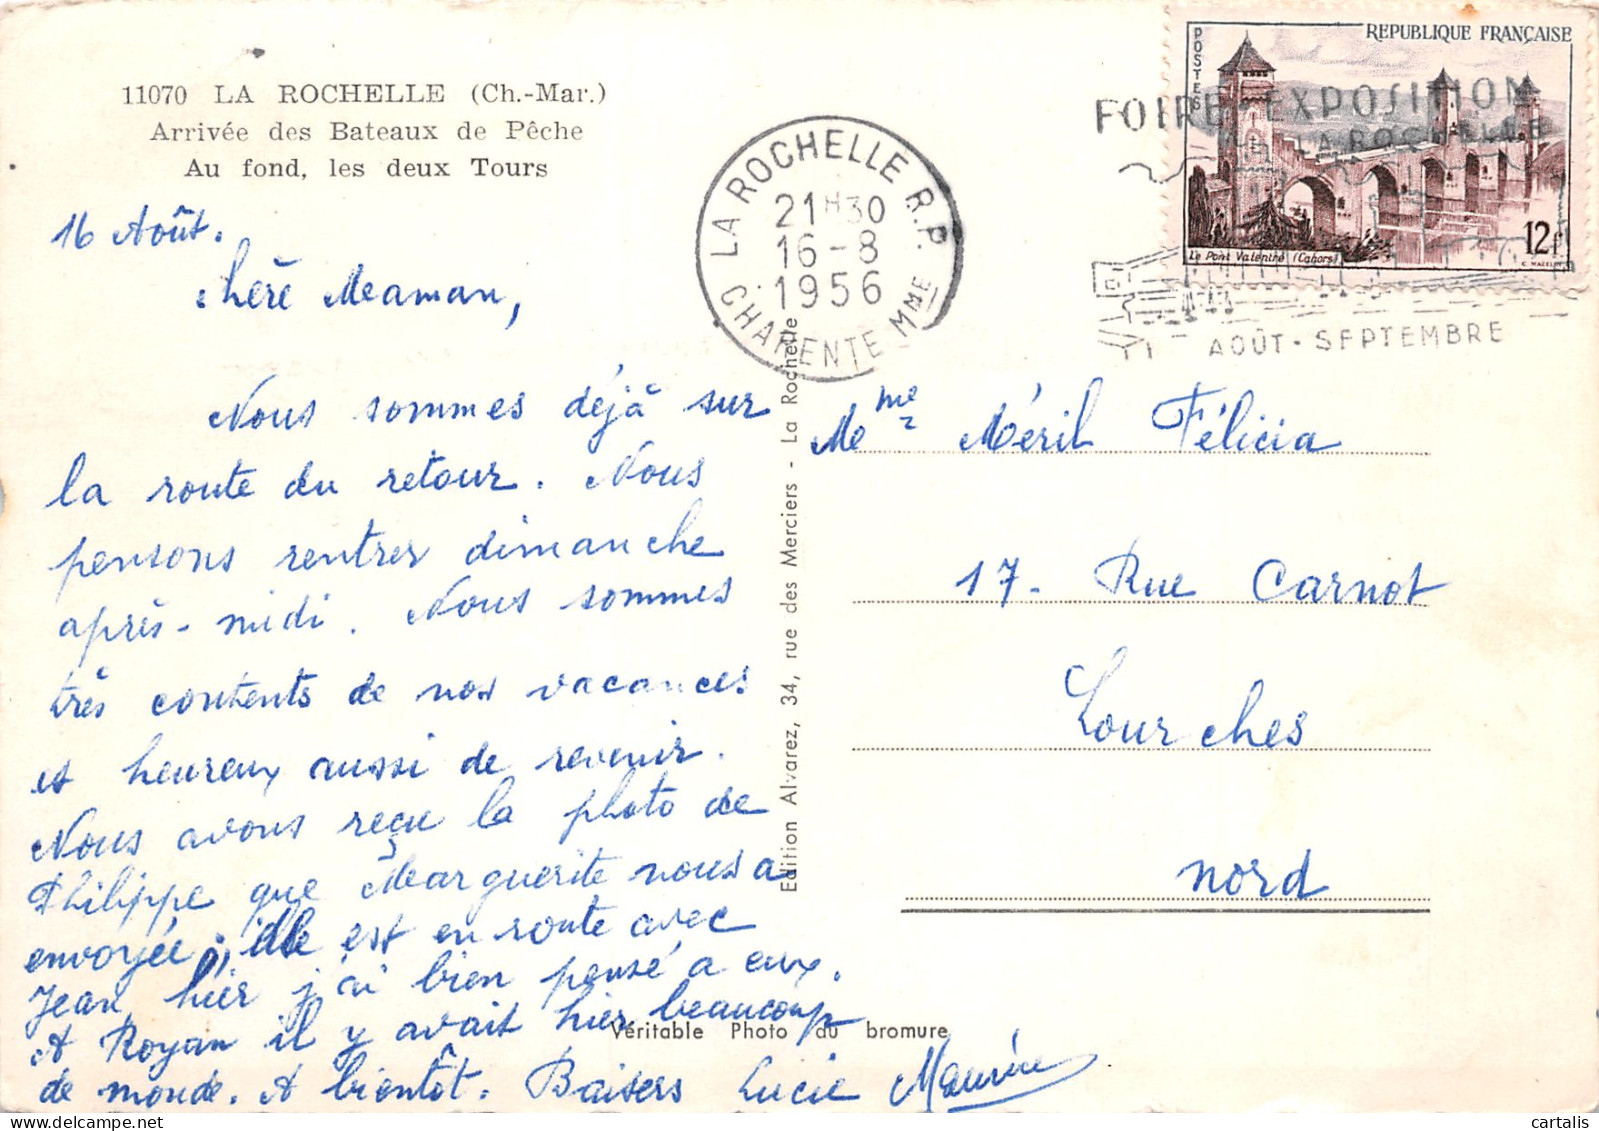 11070 LA ROCHELLE (Ch.-Mar.)
Arrivée des Bateaux de Pêche
Au fond, les deux Tours
16 Août.
Chère Maman,
Nous sommes déjà sur
la route du retour. Nous
pensons rentrer dimanche
après-midi. Nous sommes
très contents de nos vacances
et heureux aussi de revenir.
Nous avons reçu la photo de
Philippe que Marguerite nous a
envoyée, elle est en route avec
Jean, hier j'ai bien pensé à eux.
A Royan il y avait hier beaucoup
de monde. A bientôt. Baisers Lucie Maurice
Véritable Photo au bromure
Edition Alvarez, 34, rue des Merciers - La Rochelle
LA ROCHELLE R.P.
21H30
16-8
1956
CHARENTE Mme
FOIRE-EXPOSITION
LA ROCHELLE
AOÛT-SEPTEMBRE
REPUBLIQUE FRANÇAISE
POSTES
12f
Le Pont Valentré (Cahors)
C. MAZELIN
Mme Méril Félicia
17- Rue Carnot
Lourches
Nord
cartalis
delcampe.net